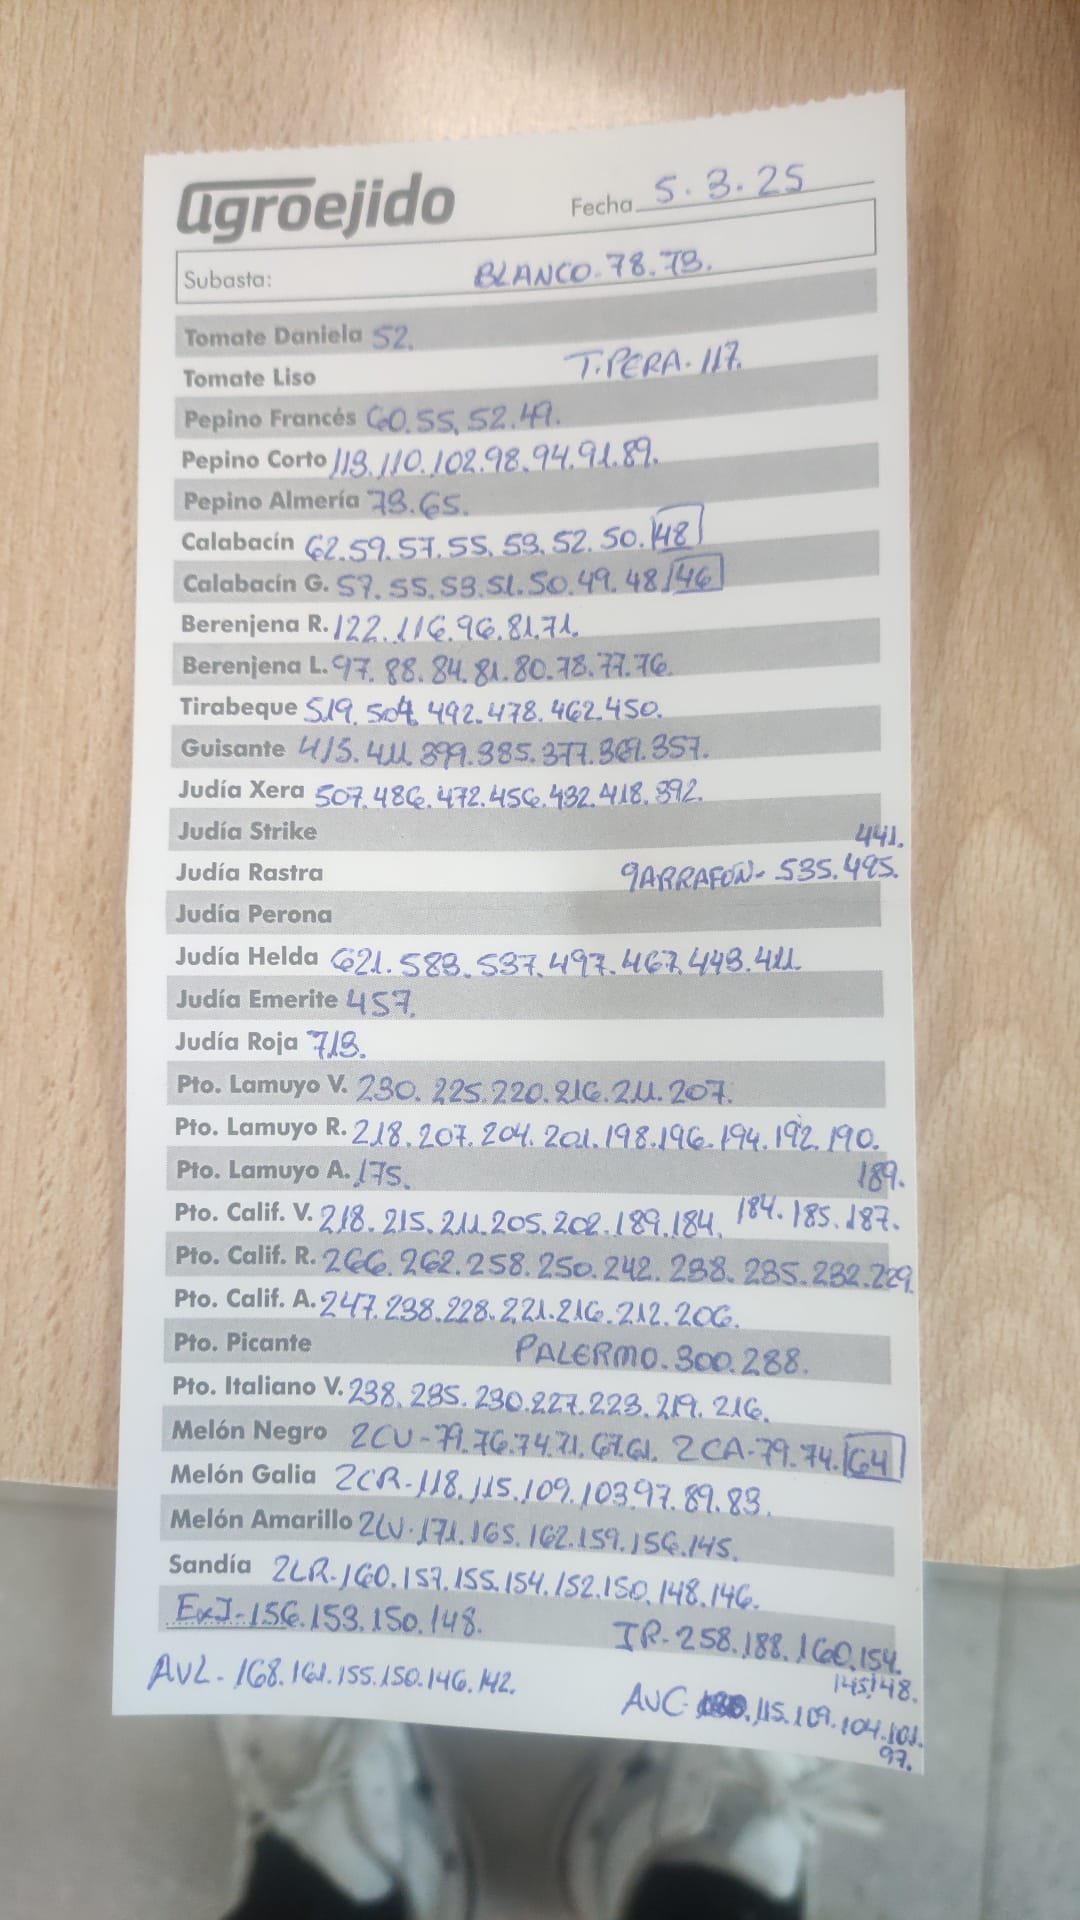 agroejido Fecha 5.3.25
Subasta: BLANCO.78.73.
Tomate Daniela 52.
Tomate Liso T.PERA.117.
Pepino Francés 60.55.52.49.
Pepino Corto 113.110.102.98.94.91.89.
Pepino Almería 73.65.
Calabacín 62.59.57.55.53.52.50.48
Calabacín G. 57.55.53.51.50.49.48.46
Berenjena R. 122.116.96.81.71.
Berenjena L. 97.88.84.81.80.78.77.76.
Tirabeque 519.504.492.478.462.450.
Guisante 415.411.399.385.377.369.357.
Judía Xera 507.486.472.456.432.418.392.
Judía Strike 441.
Judía Rastra GARRAFÓN-535.495.
Judía Perona
Judía Helda 621.583.537.497.467.443.411.
Judía Emerite 457.
Judía Roja 713.
Pto. Lamuyo V. 230.225.220.216.211.207.
Pto. Lamuyo R. 218.207.204.201.198.196.194.192.190.
Pto. Lamuyo A. 175. 189.
Pto. Calif. V. 218.215.211.205.202.189.184. 184.185.187.
Pto. Calif. R. 266.262.258.250.242.238.235.232.229.
Pto. Calif. A. 247.238.228.221.216.212.206.
Pto. Picante PALERMO.300.288.
Pto. Italiano V. 238.235.230.227.223.219.216.
Melón Negro 2CU-79.76.74.71.67.61. 2CA-79.74.64
Melón Galia 2CR-118.115.109.103.97.89.83.
Melón Amarillo 2LV.171.165.162.159.156.145.
Sandía 2LR-160.157.155.154.152.150.148.146.
ExJ-156.153.150.148. IR-258.188.160.154.
145.148.
AVL-168.161.155.150.146.142.
AVC .115.109.104.101.
97.